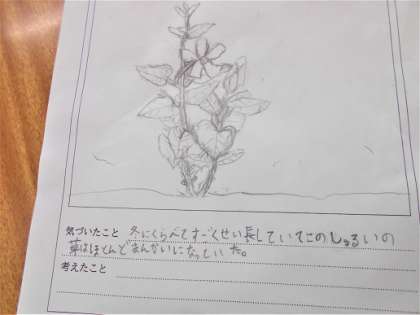 気づいたこと 冬にくらべてすごくせい長していてこのしゅるいの
草はほとんどまんかいになっていた。
考えたこと